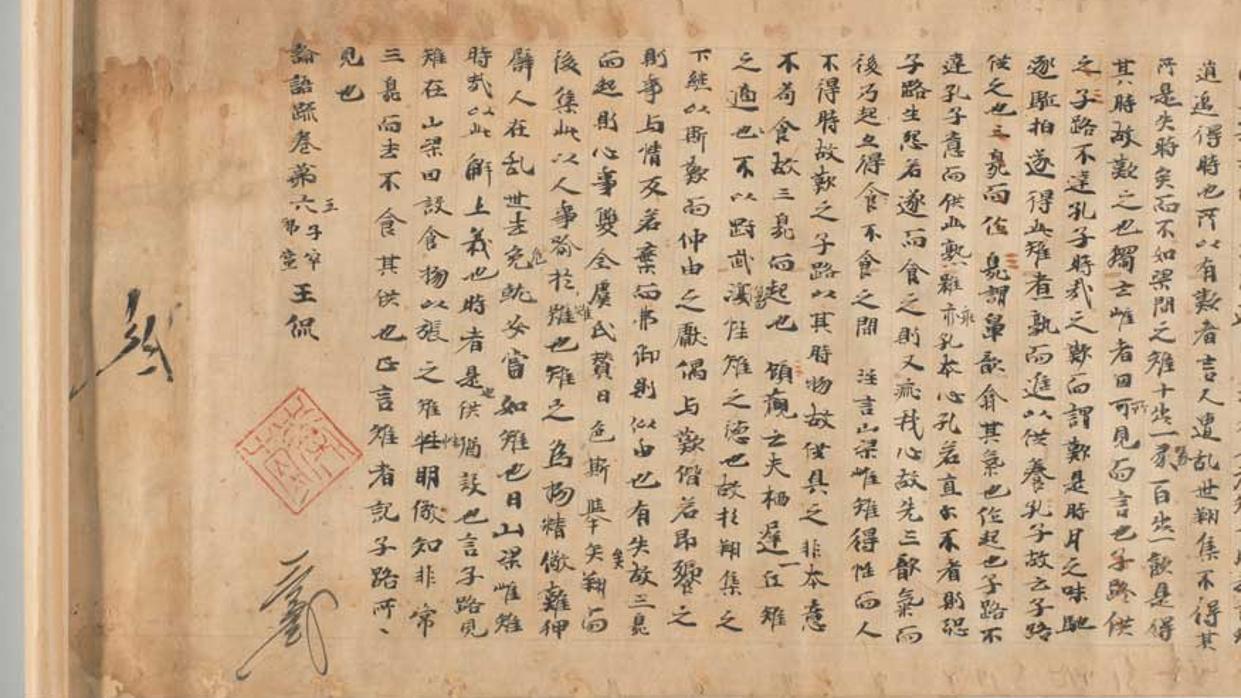 逍遥得時也所以有歎者言人遭乱世翔集不得其
所是失時矣而不如梁間之雉十步一啄百步一飲是得
其時故歎之也獨云雌者因所可見而言也子路供
之子路不達孔子時哉之歎而謂歎是時月之味馳
逐駈拍遂得此雉者孰而進以供養孔子故云子路
供之也三臭而作 臭謂鼻歆翕其氣也作起也子路不
達孔子意而供此熟雉乖孔本心孔若直尒不者則恐
子路生怨若遂而食之則又乖我心故先三歆氣而
後乃起立得食不食之間 注言山梁雌雉得性而人
不得時故歎之子路以其時物故供具之非本意
不苟食故三臭而起也 頋歡云夫栖遅一丘雉
之適也不以剛武傷性雉之徳也故於翔集之
下継以斯歎而仲由之獻偶与歎偕若即饗之
則事与情反若棄而弗御則似由也有失故三臭
而起則心事雙全虞氏賛曰色斯擧矣翔而
後集此以人事喻於雉也雉之為物精儆難狎
譬人在乱世去危就安當如雉也曰山梁雌雉
時哉以此解上義也時者是也供猶設也言子路見
雉在山梁因設食物以張之雉性明儆知非常
三臭而去不食其供也正言雌者記子路所〻
見也
論語疏卷第六 子罕 王侃